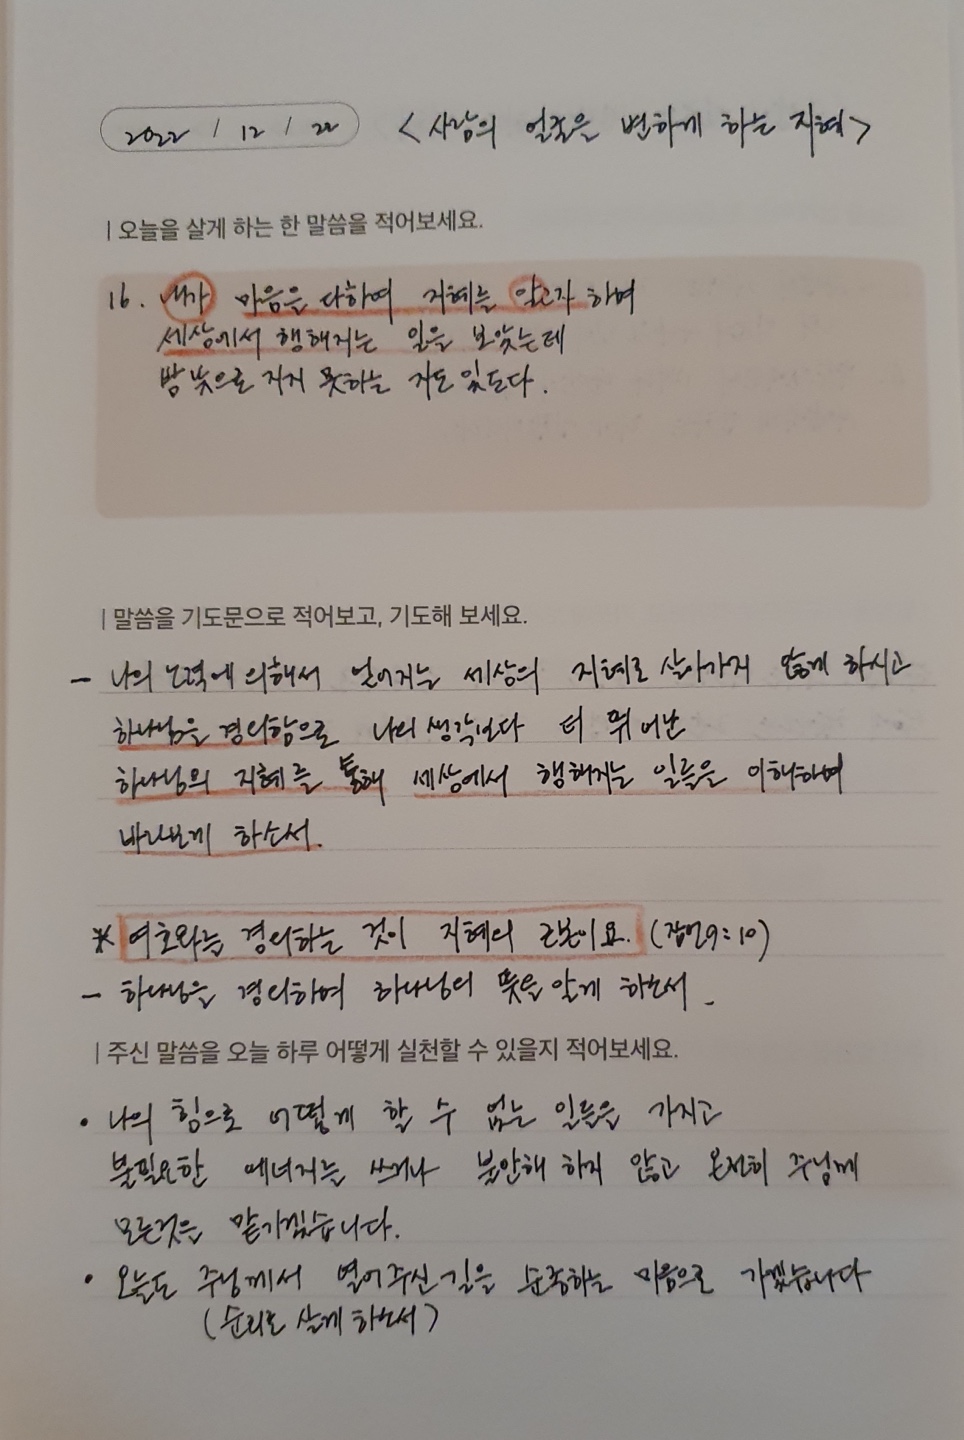 2022 / 12 / 22 <사람의 얼굴을 변하게 하는 지혜>
| 오늘을 살게 하는 한 말씀을 적어보세요.
16. 내가 마음을 다하여 지혜를 알고자 하여
세상에서 행해지는 일을 보았는데
밤낮으로 자지 못하는 자도 있도다.
| 말씀을 기도문으로 적어보고, 기도해 보세요.
- 나의 노력에 의해서 얻어지는 세상의 지혜로 살아가지 않게 하시고
하나님을 경외함으로 나의 생각보다 더 뛰어난
하나님의 지혜를 통해 세상에서 행해지는 일들을 이해하며
바라보게 하소서.
※ 여호와는 경외하는 것이 지혜의 근본이요. (잠언9:10)
- 하나님을 경외하여 하나님의 뜻을 알게 하소서.
| 주신 말씀을 오늘 하루 어떻게 실천할 수 있을지 적어보세요.
• 나의 힘으로 어떻게 할 수 없는 일들을 가지고
불필요한 에너지는 쓰거나 불안해 하지 않고 온전히 주님께
모든것을 맡기겠습니다.
• 오늘도 주님께서 열어주신 길을 순종하는 마음으로 가겠습니다
(순리로 살게 하소서)